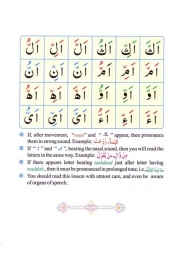 اَكَّ اَكِّ اَكُّ اَلَّ اَلِّ اَلُّ
اَمَّ اَمِّ اَمُّ اَنَّ اَنِّ اَنُّ
اَوَّ اَوِّ اَوُّ اَهَّ اَهِّ اَهُّ
اَءَّ اَءِّ اَءُّ اَىَّ اَىِّ اَىُّ
If, after movement, and appear, then pronounce
them in strong sound. Example:
If and bearing the nasal sound, then you will read the
letters in the same way. Example:
If there appears letter bearing tashdeed just after letter having
maddah, then it must be pronounced in prolonged tone, i.e.
You should read this lesson with utmost care, and even be aware
of organs of speech.